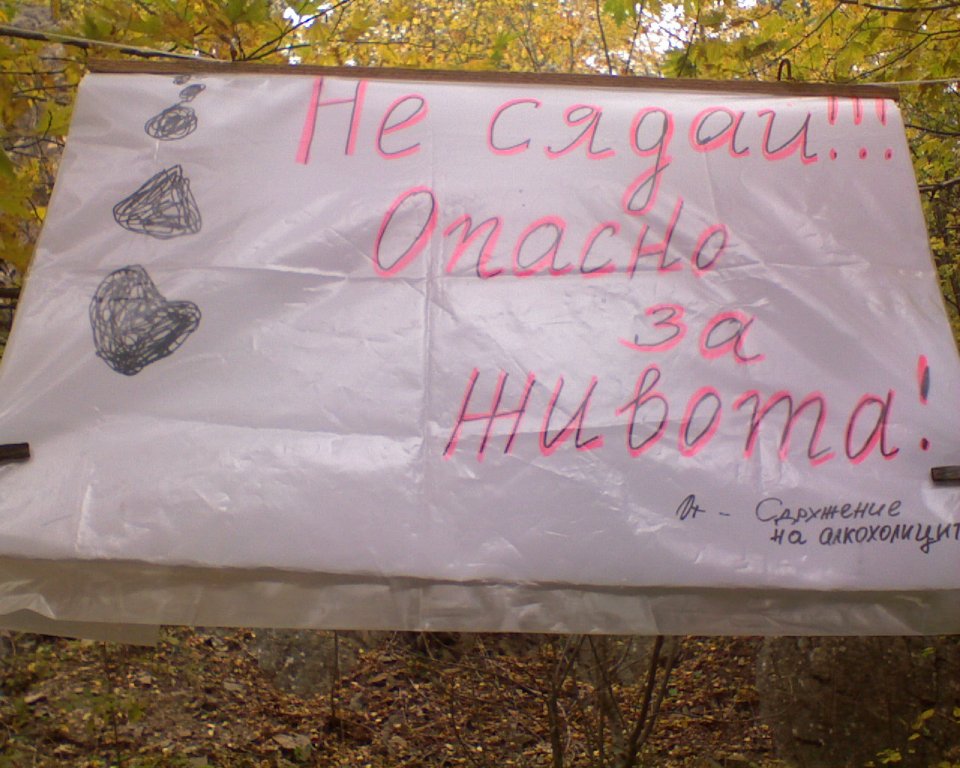 Не сядай!!!
Опасно
за
живота!
От - Сдружение
на алкохолицит